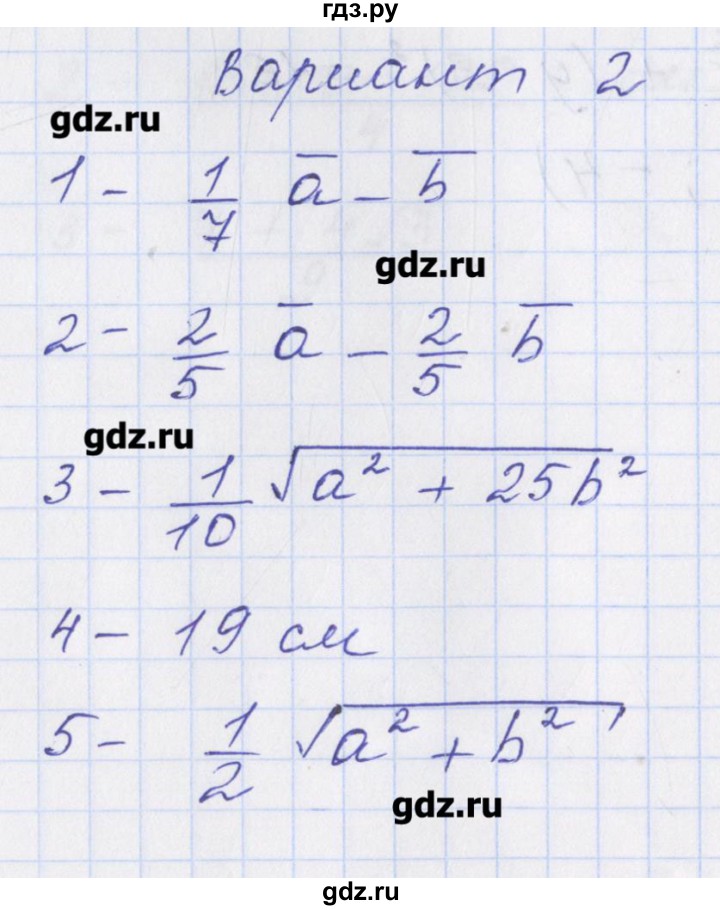 гдз.ру
Вариант 2
gdz.ru
1 - 1/7 a̅ - b̅
gdz.ru
2 - 2/5 a̅ - 2/5 b̅
gdz.ru
3 - 1/10 √(a² + 25b²)
4 - 19 см
5 - 1/2 √(a² + b²)
gdz.ru
gdz.ru